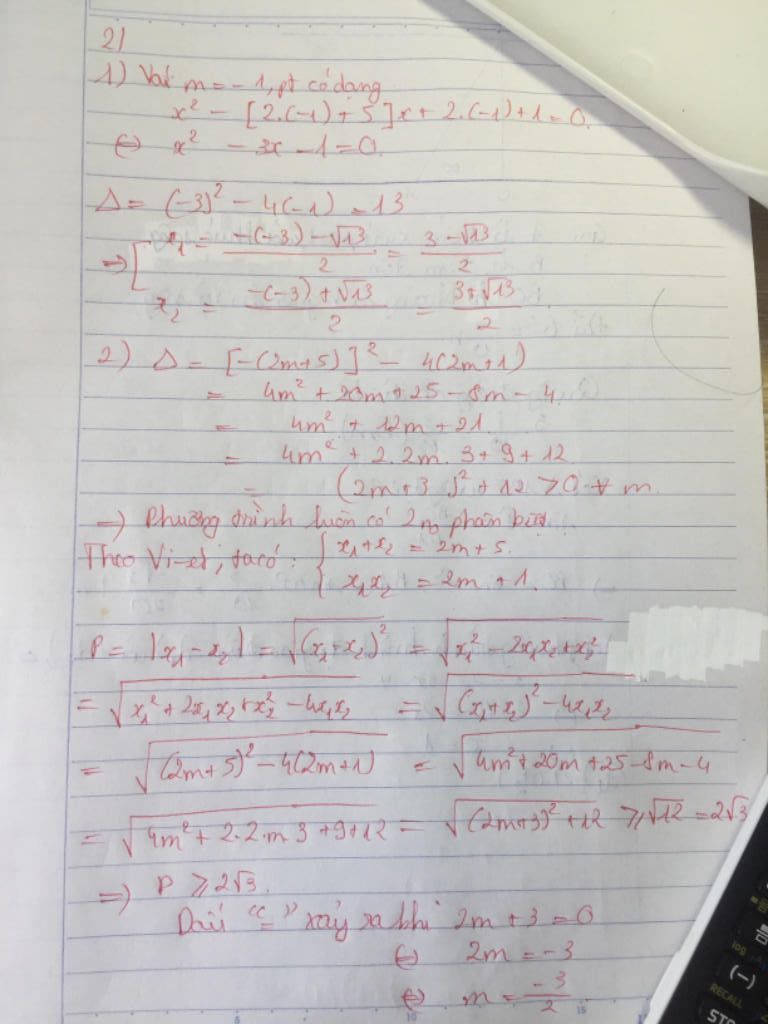 2)
1) Với m = -1, pt có dạng
x² - [2.(-1) + 5]x + 2.(-1) + 1 = 0.
⇔ x² - 3x - 1 = 0.
Δ = (-3)² - 4(-1) = 13
⇒ [ x₁ = (-(-3) - √13)/2 = (3 - √13)/2
x₂ = (-(-3) + √13)/2 = (3 + √13)/2
2) Δ = [-(2m+5)]² - 4(2m+1)
= 4m² + 20m + 25 - 8m - 4
= 4m² + 12m + 21
= 4m² + 2.2m.3 + 9 + 12
= (2m+3)² + 12 > 0 ∀ m
⇒ Phương trình luôn có 2 no phân biệt
Theo Vi-et, ta có : { x₁ + x₂ = 2m + 5.
x₁x₂ = 2m + 1.
P = |x₁ - x₂| = √(x₁ - x₂)² = √x₁² - 2x₁x₂ + x₂²
= √x₁² + 2x₁x₂ + x₂² - 4x₁x₂ = √(x₁+x₂)² - 4x₁x₂
= √(2m+5)² - 4(2m+1) = √4m² + 20m + 25 - 8m - 4
= √4m² + 2.2.m.3 + 9 + 12 = √(2m+3)² + 12 ⩾ √12 = 2√3
⇒ P ⩾ 2√3.
Dấu "=" xảy ra khi 2m + 3 = 0
⇔ 2m = -3
⇔ m = -3/2
log
(-)
RECALL
STO
5
10
15